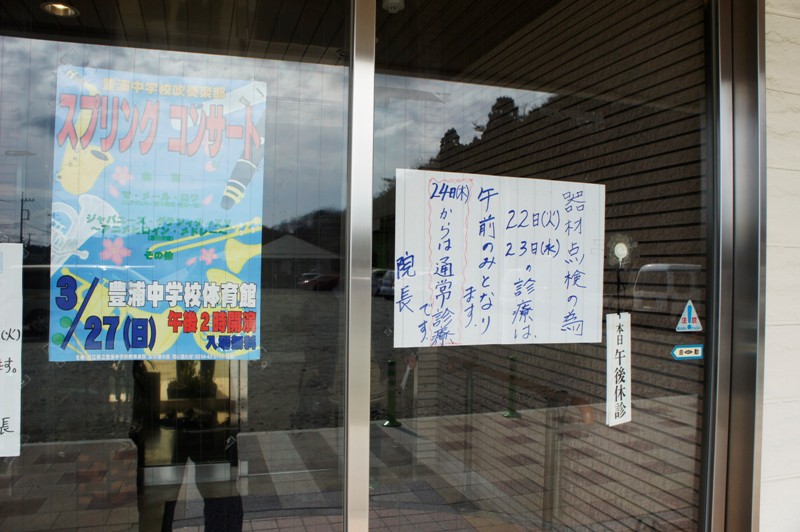 豊浦中学校吹奏楽部
スプリング コンサート
マ・メール・ロワ
その他
3/27(日)
豊浦中学校体育館
午後2時開演
入場無料
器材点検の為
22日(火)
23日(水)の診療は、
午前のみとなり
ます。
24日(木)からは通常診療
です。
院長
本日 午後休診
注意
自動
(火)
す。
長